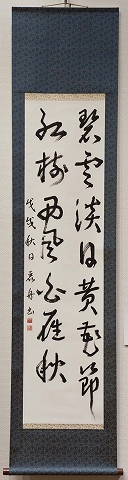 碧雲淡日黄花節
紅樹西風白雁秋
戊戌秋日